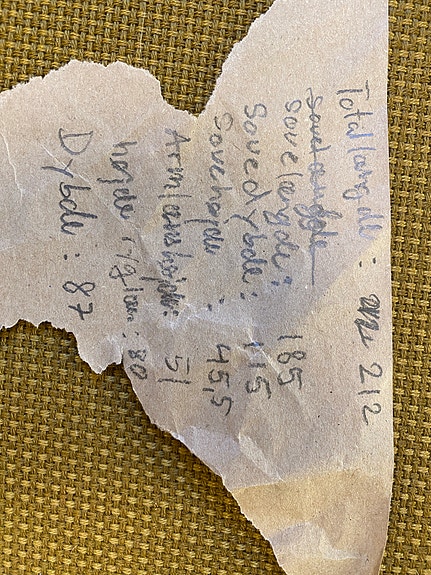 Total længde : 212
Sovelængde
Sovelængde : 185
Sovedybde : 115
Sovehøjde : 45,5
Armlænshøjde: 51
højde ryglæn : 80
Dybde : 87